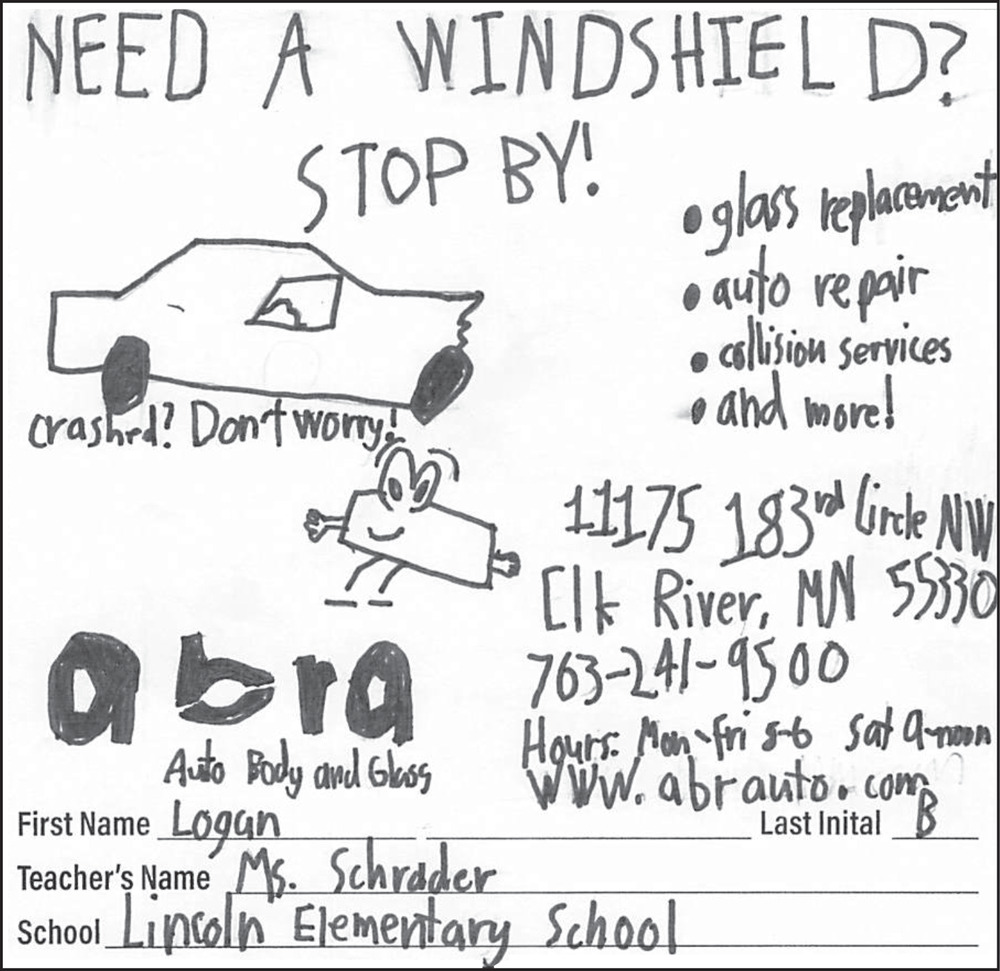 NEED A WINDSHIELD?
STOP BY!
• glass replacement
• auto repair
• collision services
• and more!
crashed? Don't worry!
11175 183rd Circle NW
Elk River, MN 55330
763-241-9500
Hours: Mon-Fri 8-6 Sat 9-noon
www.abrauto.com
abra
Auto Body and Glass
First Name Logan Last Inital B
Teacher's Name Ms. Schrader
School Lincoln Elementary School